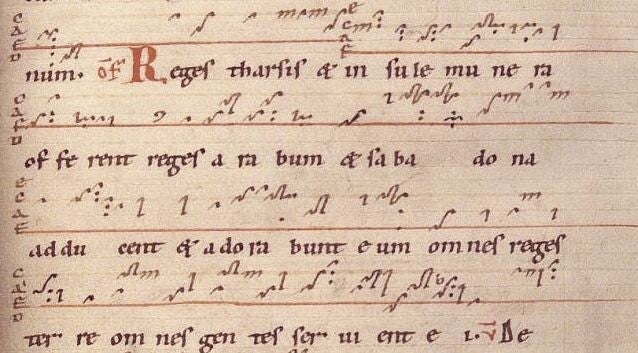 num. Of Reges tharsis & in sule mu ne ra
of fe rent reges a ra bum & sa ba do na
addu cent & adora bunt e um omnes reges
ter re om nes gen tes ser ui ent e i. V De